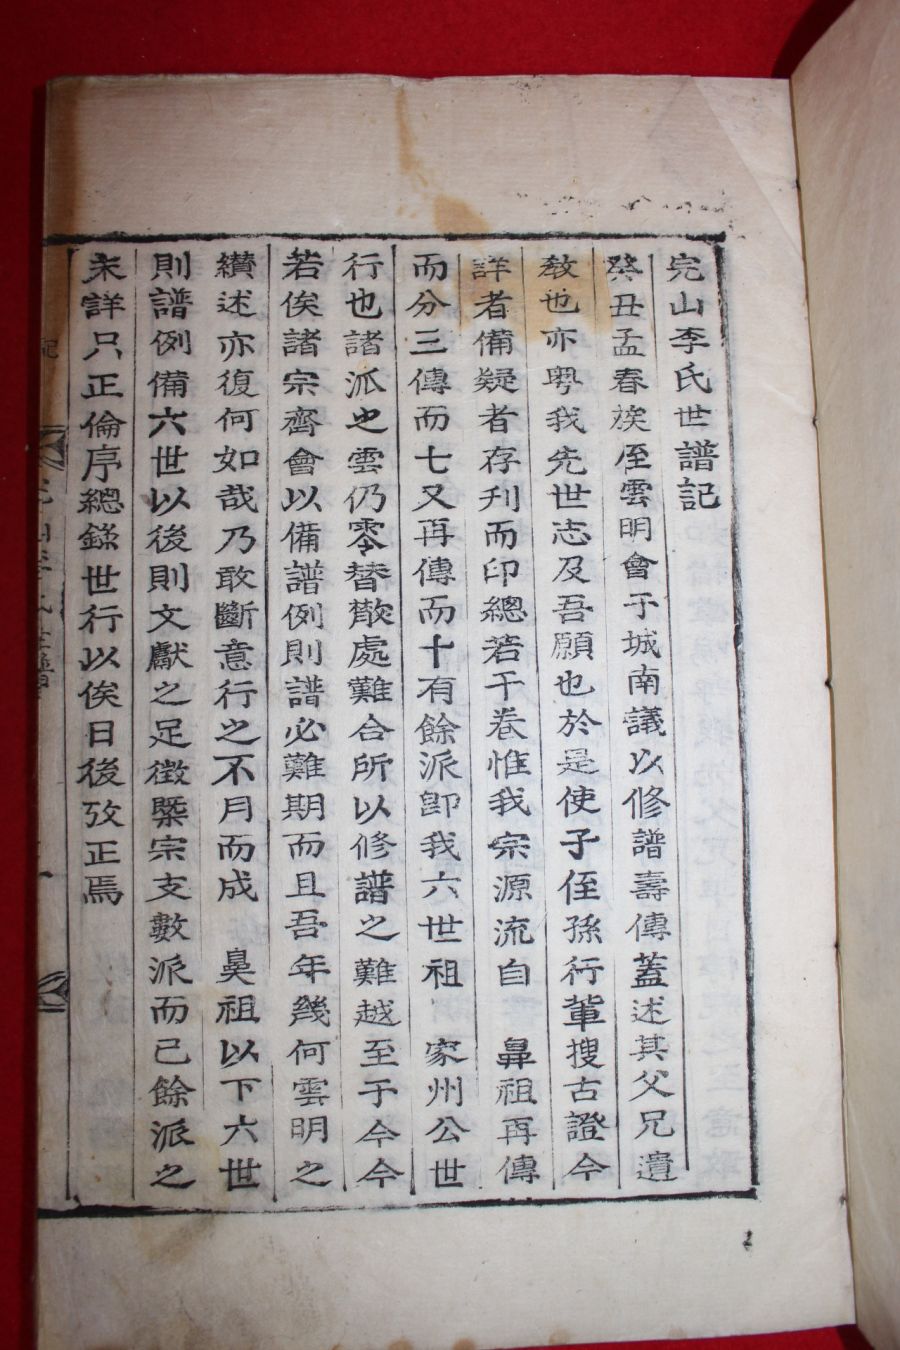 完山李氏世譜記
癸丑孟春族侄雲明會于城南議以修譜壽傳蓋述其父兄遺
教也亦粤我先世志及吾願也於是使子侄孫行輩搜古證今
詳者備疑者存刋而印總若干卷惟我宗源流自 鼻祖再傳
而分三傳而七又再傳而十有餘派卽我六世祖 家州公世
行也諸派之雲仍零替散處難合所以修譜之難越至于今今
若俟諸宗齊會以備譜例則譜必難期而且吾年幾何雲明之
纉述亦復何如哉乃敢斷意行之不月而成 鼻祖以下六世
則譜例備六世以後則文獻之足徵槩宗支數派而已餘派之
未詳只正倫序總錄世行以俟日後攷正焉